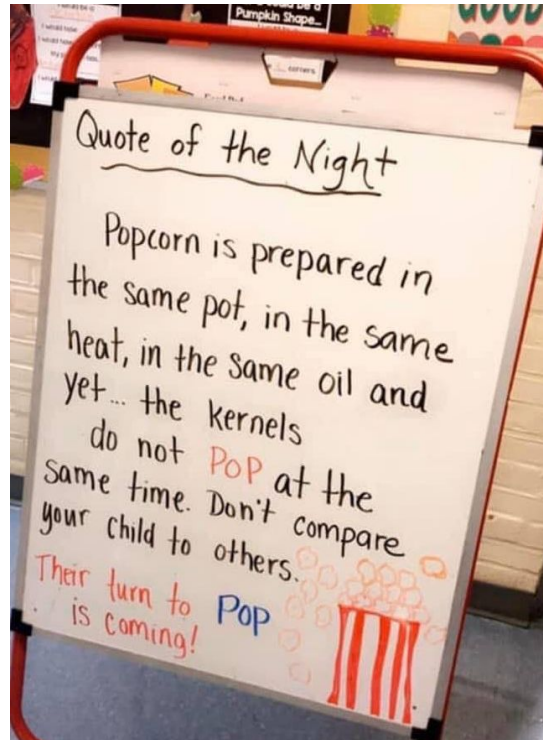 Pumpkin Shape...
corners
Quote of the Night
Popcorn is prepared in
the same pot, in the same
heat, in the same oil and
yet... the kernels
do not POP at the
same time. Don't compare
your child to others.
Their turn to POP
is coming!